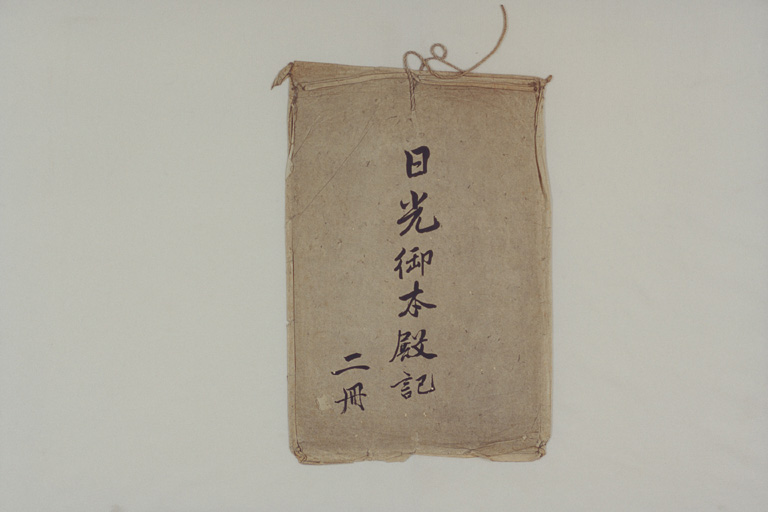 日光御本殿記
二冊